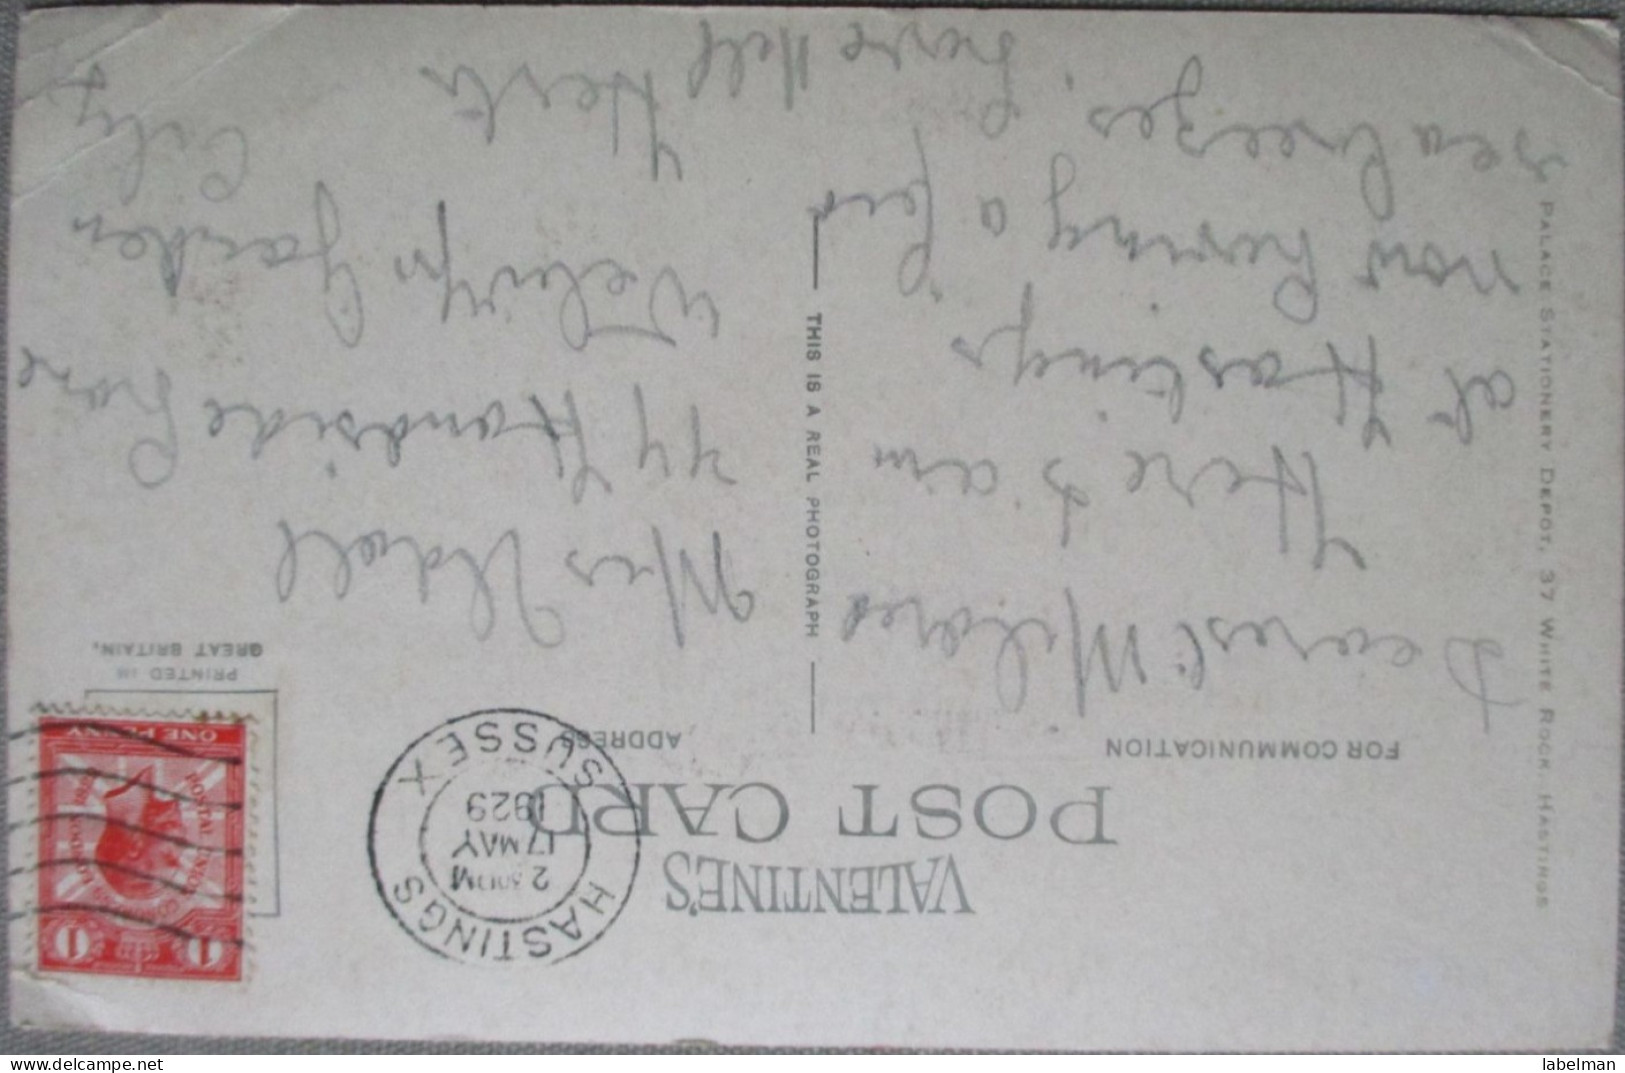 VALENTINE'S
POST CARD
FOR COMMUNICATION
ADDRESS
PRINTED IN
GREAT BRITAIN.
HASTINGS
SUSSEX
2 30 PM
17 MAY
1929
1 1
POSTAL UNION CONGRESS LONDON 1929
ONE PENNY
Dearest Mildred
Here I am
at Hastings
now having a few
sea breezes.
Love Nell
Mrs Udall
77 Handside Lane
Welwyn Garden
City
Herts
THIS IS A REAL PHOTOGRAPH
PALACE STATIONERY DEPOT, 37 WHITE ROCK, HASTINGS
labelman